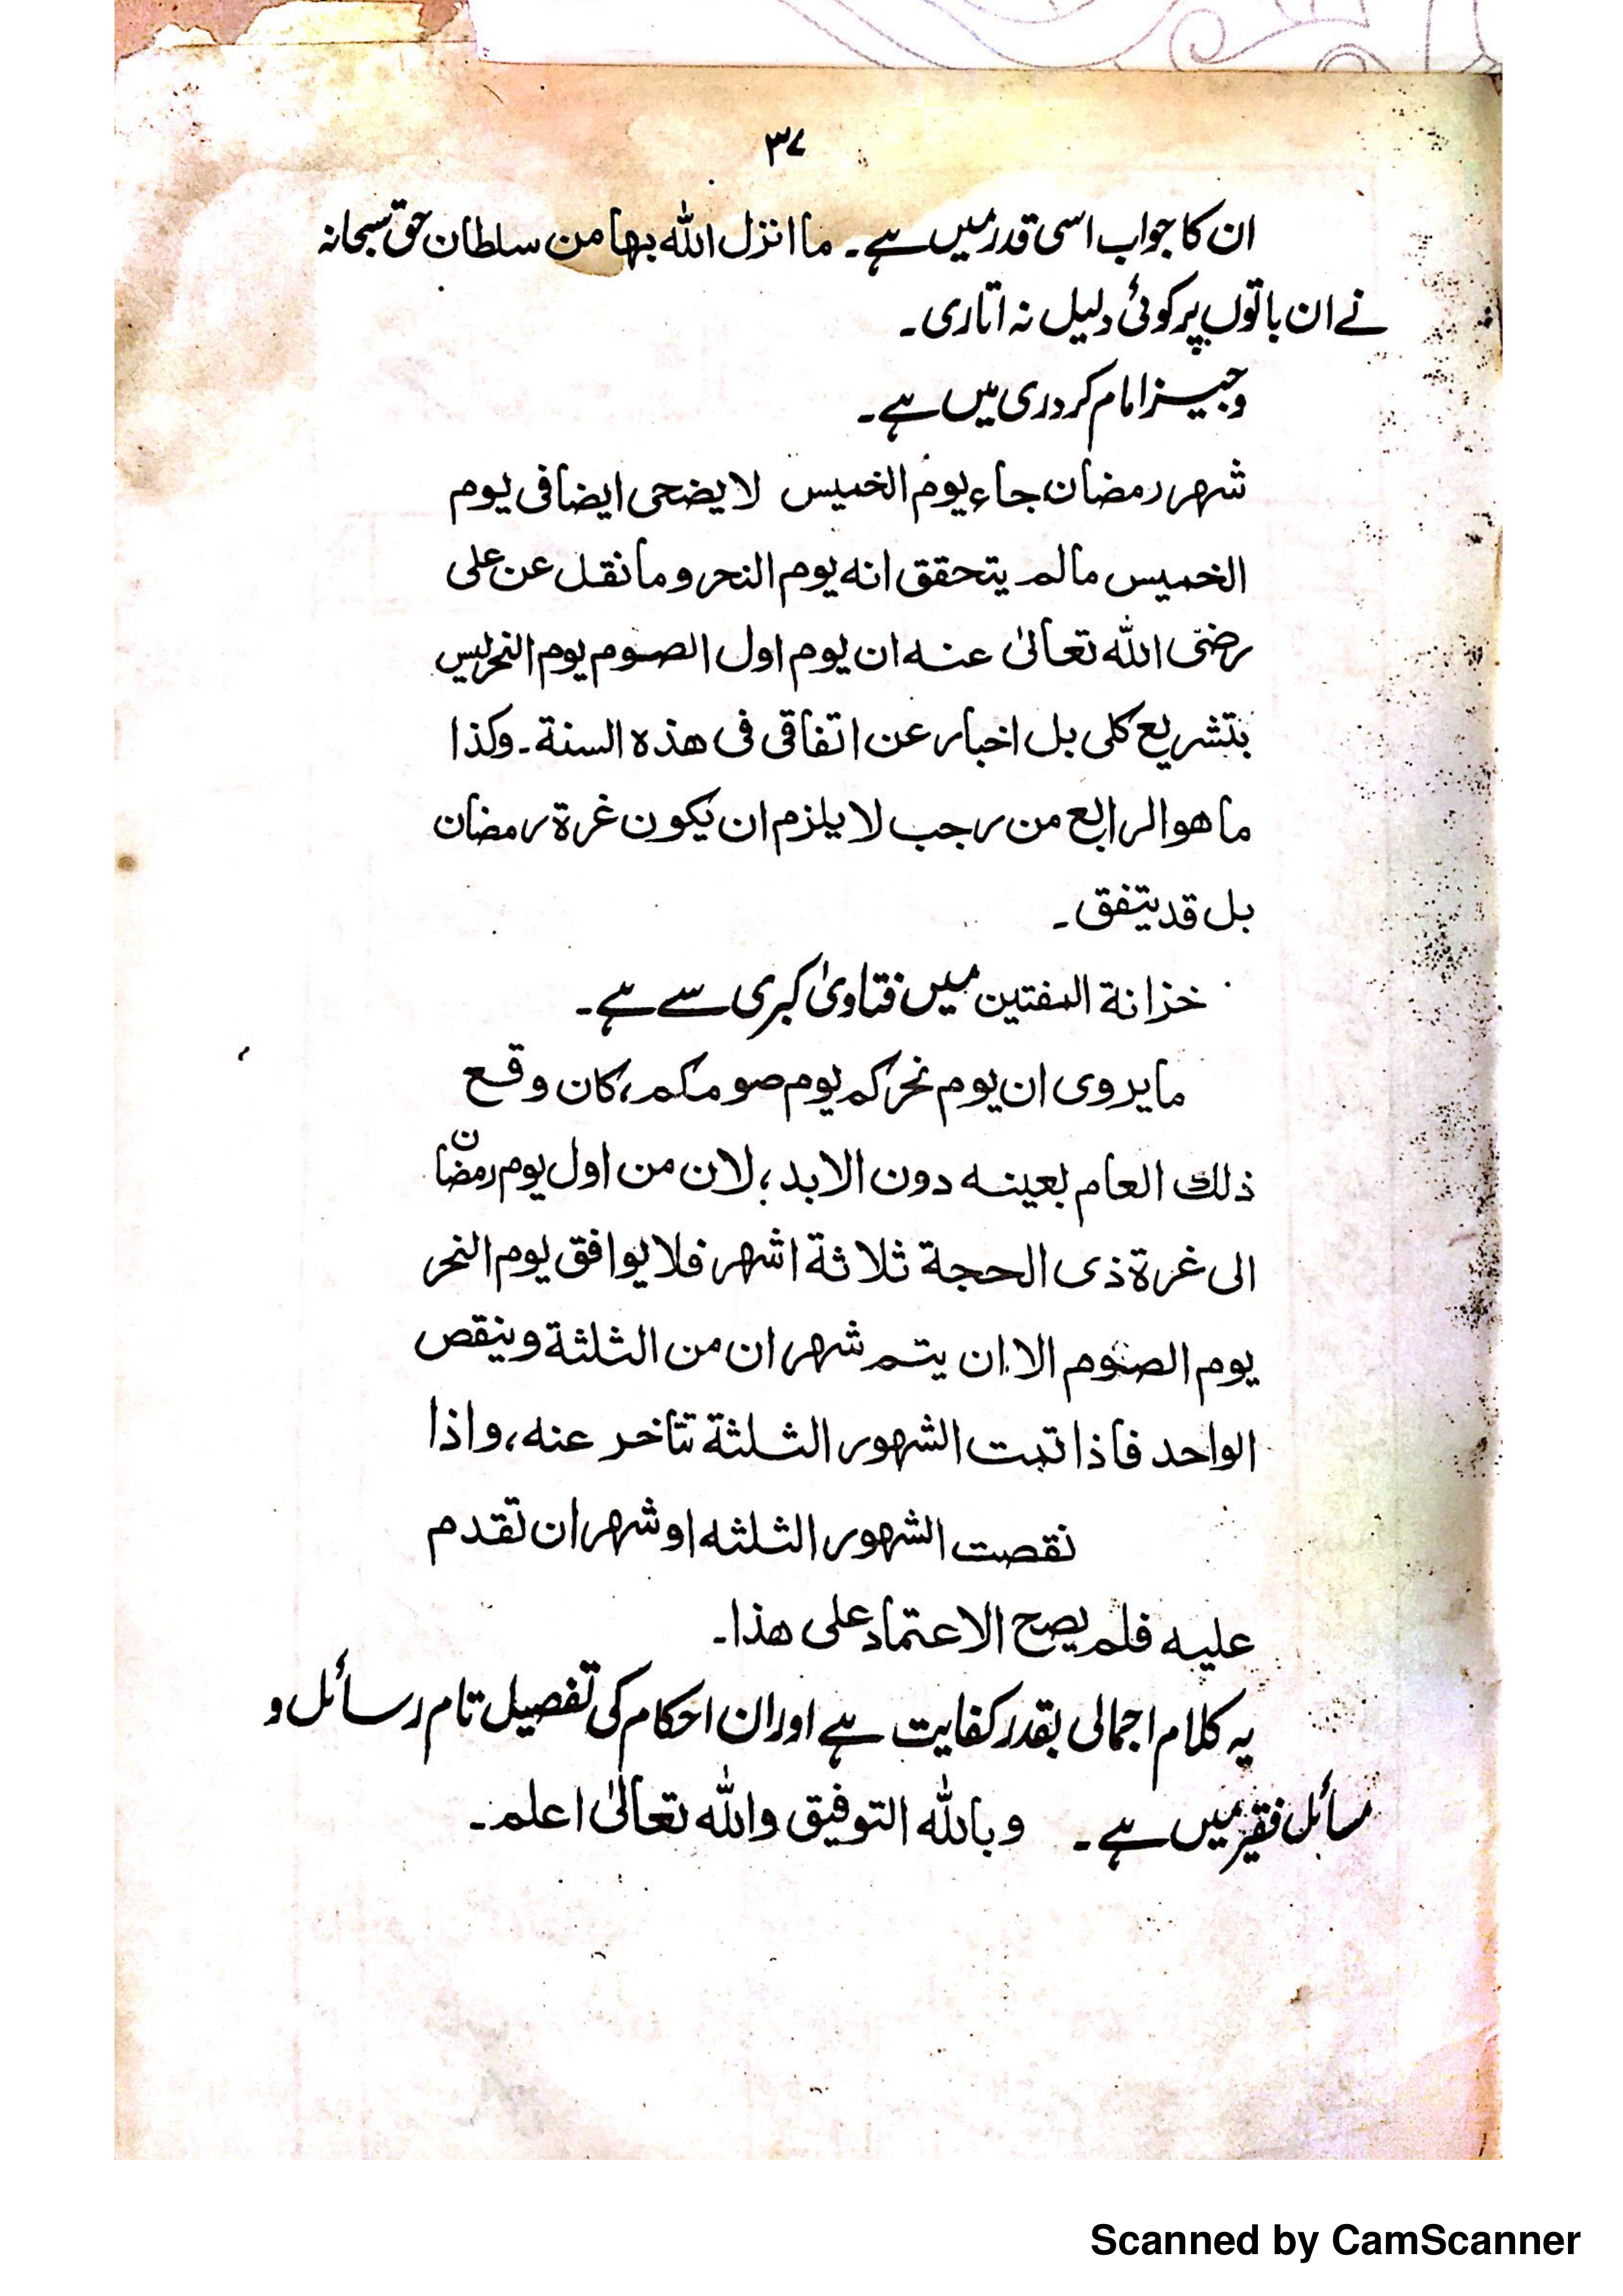 ۳۷
ان کا جواب اسی قدر میں ہے۔ ما انزل اللہ بھا من سلطان حق سبحانہ
نے ان باتوں پر کوئی دلیل نہ اتاری۔
وجیز امام کردری میں ہے۔
شھر رمضان جاء یوم الخمیس لا یضحی ایضا فی یوم
الخمیس مالم یتحقق انہ یوم النحر و ما نقل عن علی
رضی اللہ تعالیٰ عنہ ان یوم اول الصوم یوم النحر لیس
بتشریع کلی بل اخبار عن اتفاقی فی ھذہ السنة۔ وکذا
ما ھو الرابع من رجب لا یلزم ان یکون غرة رمضان
بل قد یتفق۔
خزانة المفتین میں فتاویٰ کبری سے ہے۔
ما یروی ان یوم نحرکم یوم صومکم، کان وقع
ذلك العام بعینہ دون الابد؛ لان من اول یوم رمضان
الی غرة ذی الحجة ثلاثة اشھر فلا یوافق یوم النحر
یوم الصوم الا ان یتم شھران من الثلثة وینقص
الواحد فاذا تمت الشھور الثلثة تتاخر عنہ، واذا
نقصت الشھور الثلثہ او شھران تقدم
علیہ فلم یصح الاعتماد علی ھذا۔
یہ کلام اجمالی بقدر کفایت ہے اور ان احکام کی تفصیل تام رسائل و
مسائل فقیر میں ہے۔ وباللہ التوفیق واللہ تعالیٰ اعلم۔
Scanned by CamScanner